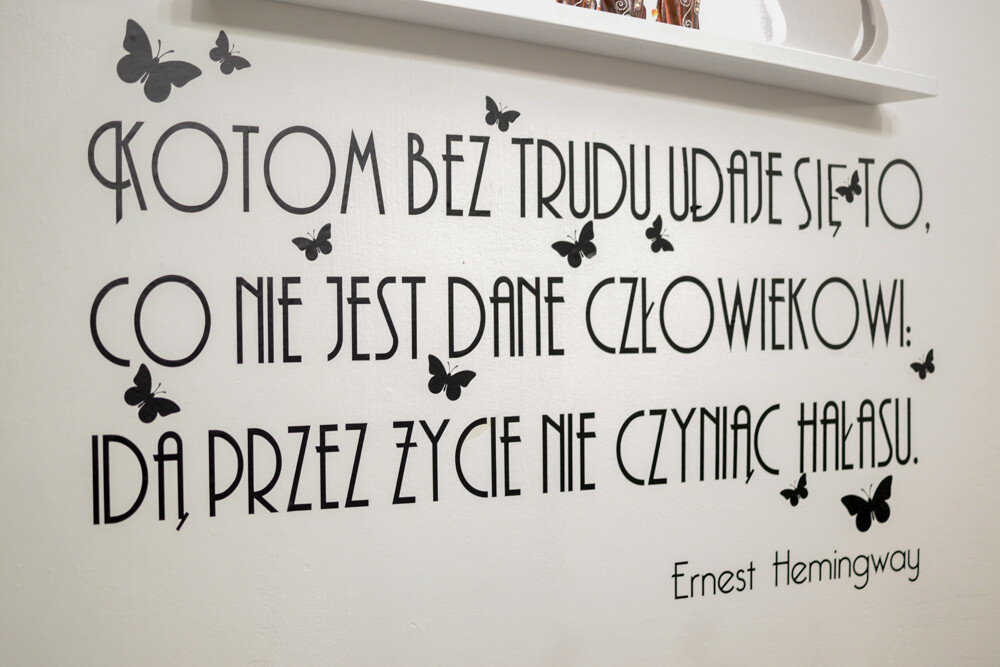 KOTOM BEZ TRUDU UDAJE SIĘ TO,
CO NIE JEST DANE CZŁOWIEKOWI:
IDĄ PRZEZ ŻYCIE NIE CZYNIĄC HAŁASU.
Ernest Hemingway